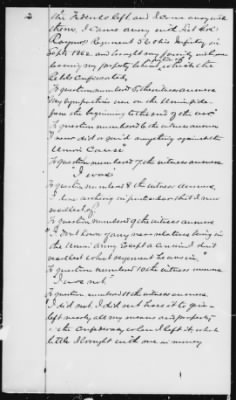 2
the Federals left and I came away with
them, I came away with Col
Regiment 36 Ohio Infantry, in
Sept 1862 and brought my family with me
leaving my property behind which the
Rebels Confiscated
To question numbered 5 the witness answers
My sympathies were on the Union side
from the beginning to the end of the war
To question numbered 6 the witness answers
I never did or said anything against the
Union Cause"
To question numbered 7 the witness answers
"I was"
To question numbered 8 the witness answers,
I has nothing in particular that I now
recollect of.
To question numbered 9 the witness answers
"I don't know of any near relatives being in
the Union Army Except a Cousin I don't
recollect what regiment he was in"
To question numbered 10 the witness answers
"I was not"
To question numbered 11 the witness answers
I did not. I did not have it to give
left nearly all my means and property
in the Confederacy when I left it, what
little I brought with me in money